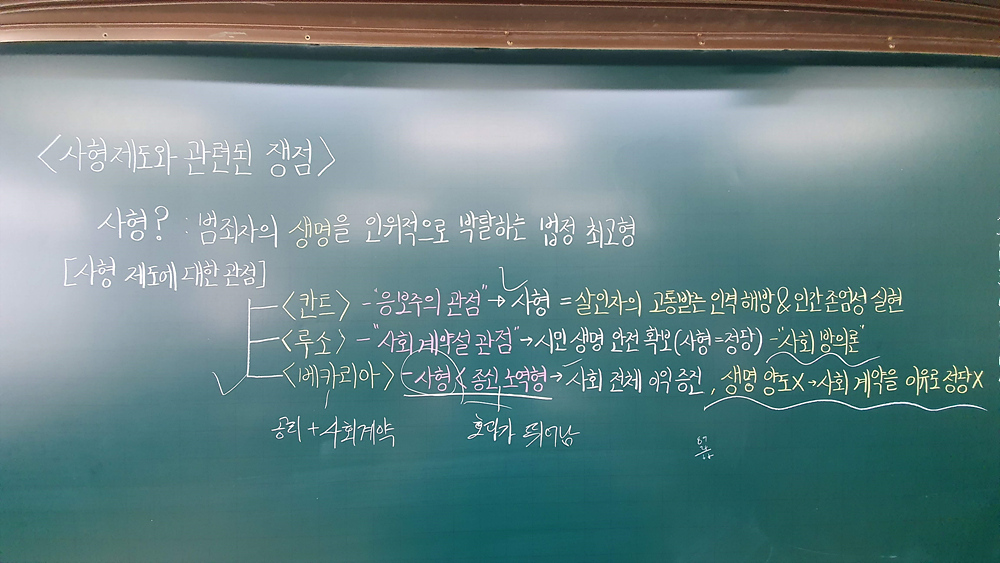 <사형제도와 관련된 쟁점>
사형? : 범죄자의 생명을 인위적으로 박탈하는 법정 최고형
[사형 제도에 대한 관점]
<칸트> - "응보주의 관점" → 사형 = 살인자의 고통받는 인격 해방 & 인간 존엄성 실현
<루소> - "사회계약설 관점" → 시민 생명 안전 확보 (사형 = 정당) - "사회 방위론"
<베카리아> - 사형 < 종신 노역형 → 사회 전체 이익 증진, 생명 양도 X → 사회 계약을 이유로 정당 X
공리 + 사회계약 효과가 뛰어남